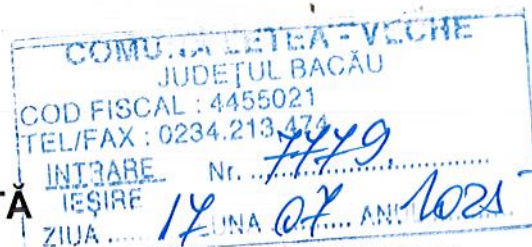 COMUNA LETEA - VECHE
JUDEȚUL BACĂU
COD FISCAL : 4455021
TEL/FAX : 0234.213.474
INTRARE Nr. 7779
IEȘIRE
ZIUA 17 LUNA 07 ANUL 2025
TĂ